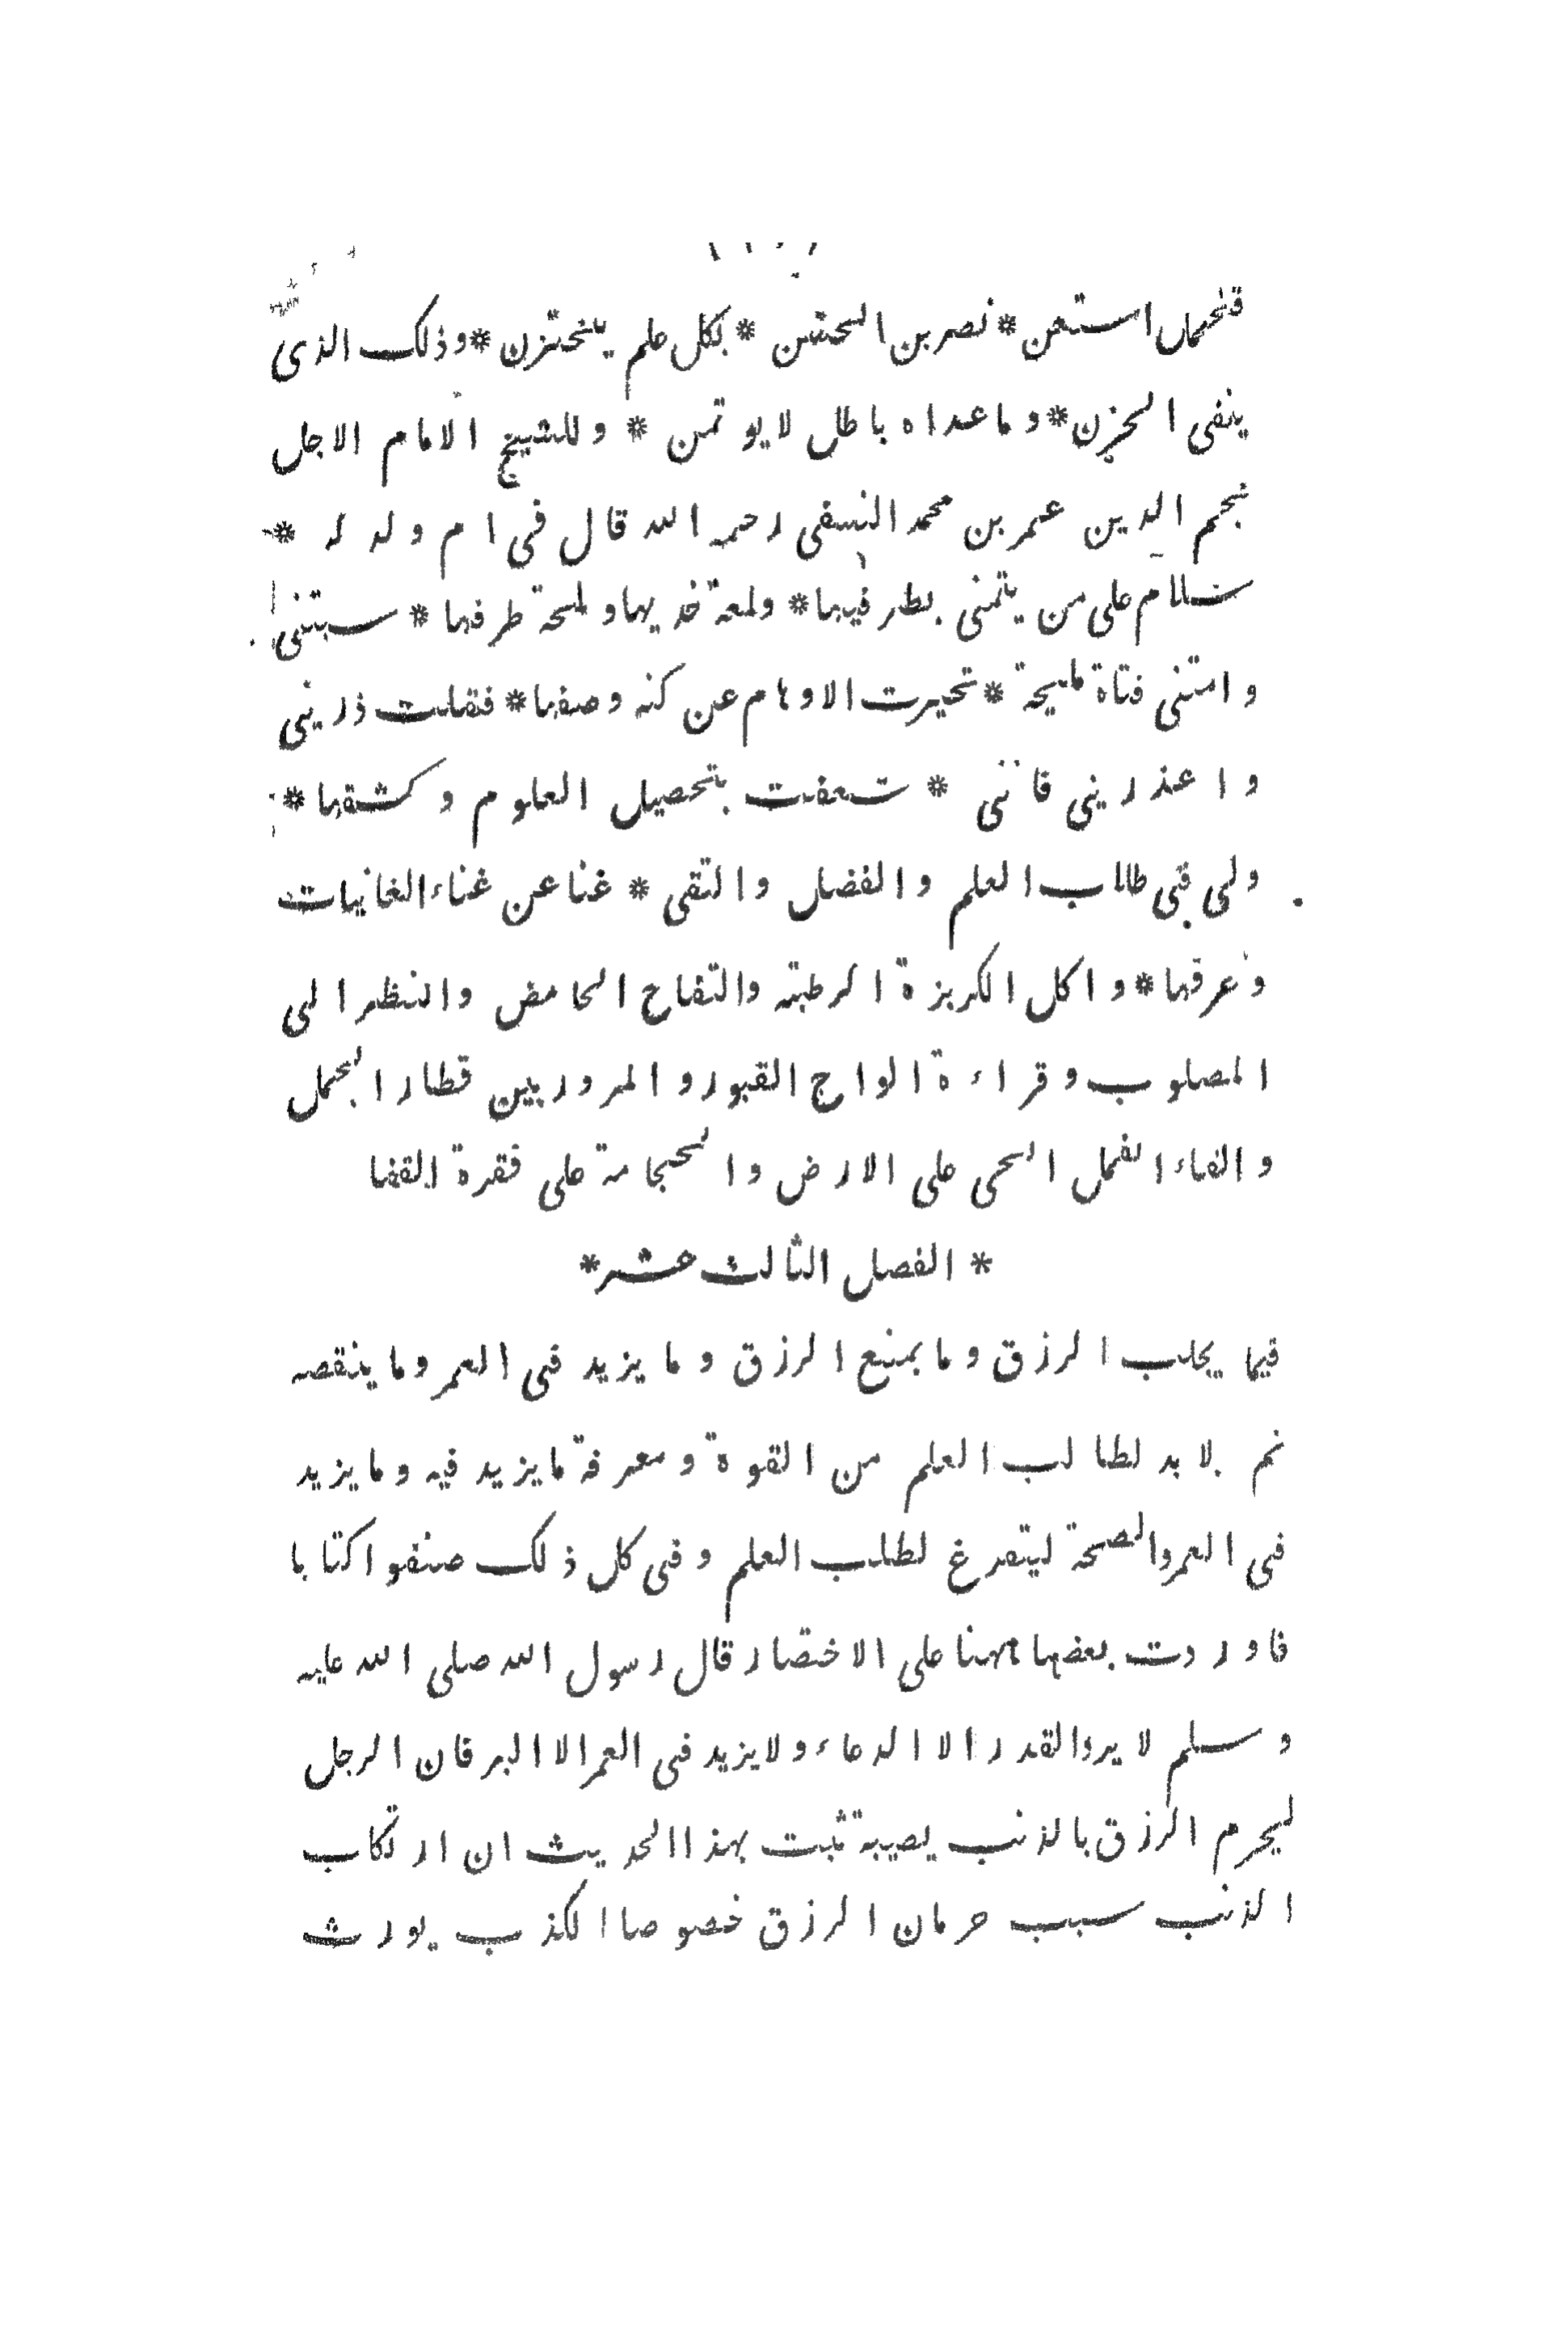 استعن * نصر بن الحسن * بكل علم يختزن * وذلك الذى
ينفى الحزن * وما عداه باطل لا يوتمن * وللشيخ الامام الاجل
نجم الدين عمر بن محمد النسفى رحمه الله قال فى ام ولد له *
سلام على من يتمنى بظرفيها * ولمعة خديها ولمحة طرفها * سبتنى
وامتنى فتاة مليحة * تحيرت الاوهام عن كنه وصفها * فقلت ذرينى
واعذرينى فاننى * شعفت بتحصيل العلوم وكشفها *
ولى فى طلاب العلم والفضل والتقى * غنا عن غناء الغانيات
وعرفها * واكل الكربزة الرطبته والتفاح الحامض والنظر الى
المصلوب وقراءة الواج القبور والمرور بين قطار الجمل
والقاء القمل الحى على الارض والحجامة على فقرة القفا
* الفصل الثالث عشر *
فيما يجلب الرزق وما يمنع الرزق وما يزيد فى العمر وما ينقصه
ثم لا بد لطالب العلم من القوة ومعرفة ما يزيد فيه وما يزيد
فى العمر والصحة ليتفرغ لطلب العلم وفى كل ذلك صنفوا كتابا
فاوردت بعضها ههنا على الاختصار قال رسول الله صلى الله عليه
وسلم لا يرد القدر الا الدعاء ولا يزيد فى العمر الا البر فان الرجل
ليحرم الرزق بالذنب يصيبة ثبت بهذا الحديث ان ارتكاب
الذنب سبب حرمان الرزق خصوصا الكذب يورث